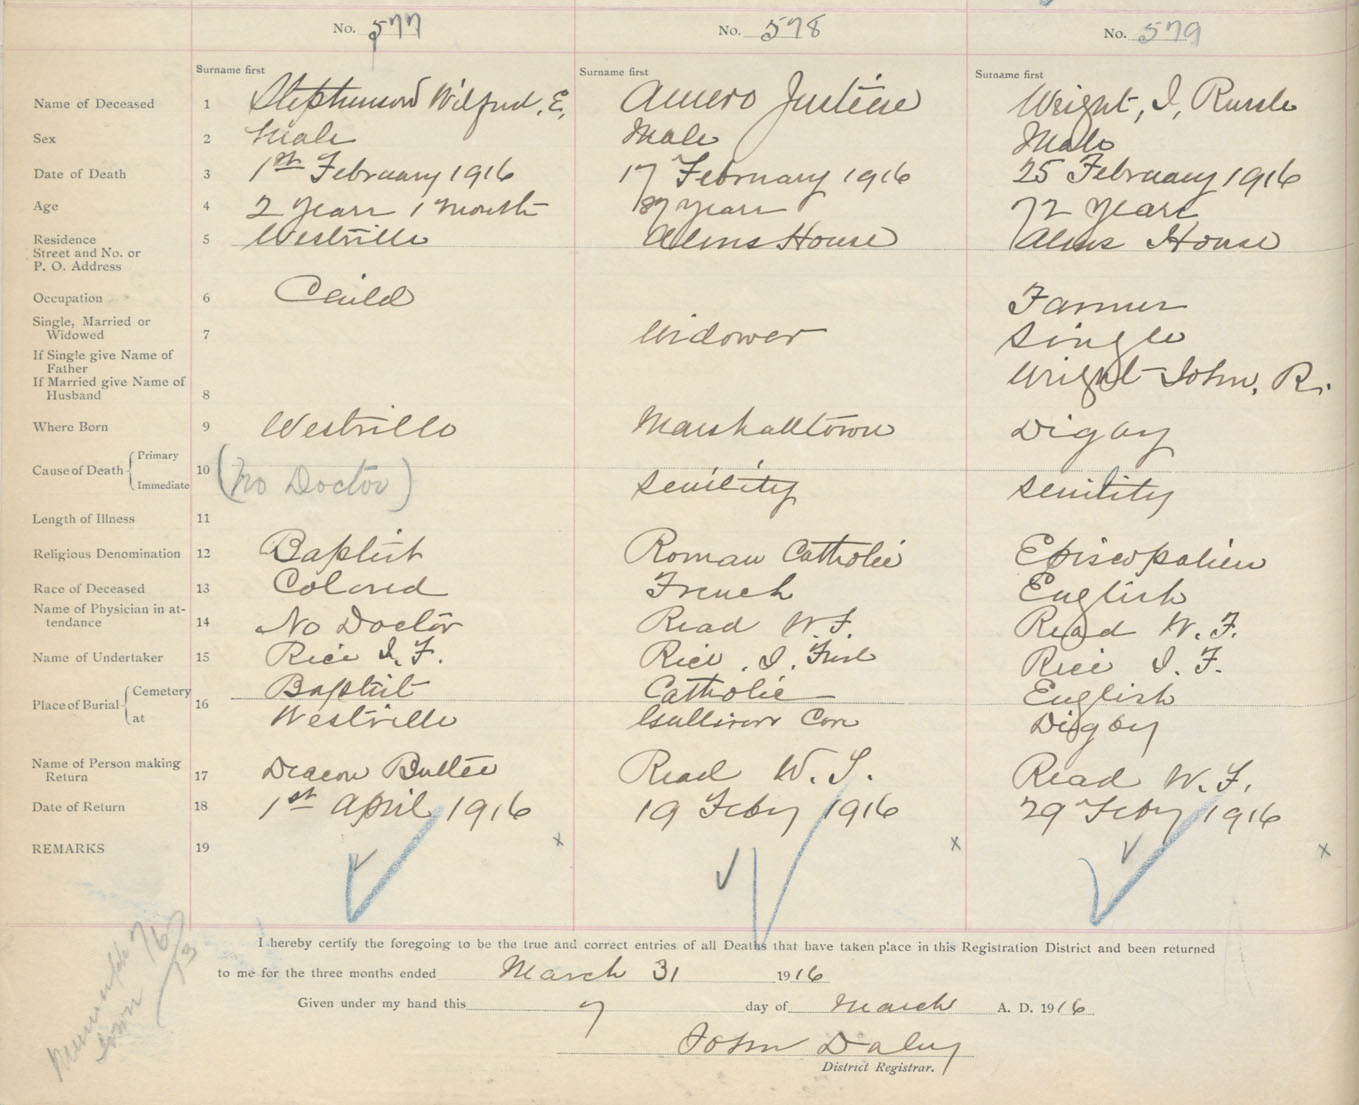 No. 577 No. 578 No. 579
Surname first Surname first Surname first
Name of Deceased 1 Stephenson Wilfred. E. Amero Justine Wright, J. Russle
Sex 2 Male Male Male
Date of Death 3 1st February 1916 17 February 1916 25 February 1916
Age 4 2 years 1 month 87 years 72 years
Residence 5 Westville Alms House Alms House
Street and No. or
P. O. Address
Occupation 6 Child Farmer
Single, Married or
Widowed 7 Widower Single
If Single give Name of
Father
If Married give Name of Wright John. R.
Husband 8
Where Born 9 Westville Marshalltown Digby
Cause of Death Primary
Immediate 10 (No Doctor) senility senility
Length of Illness 11
Religious Denomination 12 Baptist Roman Catholic Episcopalien
Race of Deceased 13 Colored French English
Name of Physician in at-
tendance 14 No Doctor Read W. F. Read W. F.
Name of Undertaker 15 Rice J. F. Rice . J. Fred Rice J. F.
Place of Burial Cemetery 16 Baptist Catholic English
at Westville Gullivers Cove Digby
Name of Person making
Return 17 Deacon Butler Read W. F. Read W. F.
Date of Return 18 1st April 1916 19 Feby 1916 29 Feby 1916
REMARKS 19 x x x
I hereby certify the foregoing to be the true and correct entries of all Deaths that have taken place in this Registration District and been returned
to me for the three months ended March 31 1916
Given under my hand this 7 day of March A. D. 1916
John Daley
District Registrar.